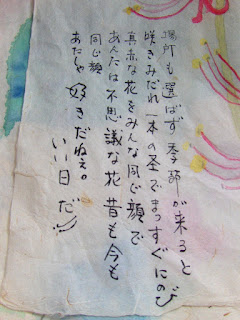 場所も選ばず季節が来ると
咲きみだれ一本の茎でまっすぐにのび
真赤な花をみんな同じ顔で
あんたは不思議な花昔も今も
同じ顔
あたしゃ好きだねえ。
いい日だ